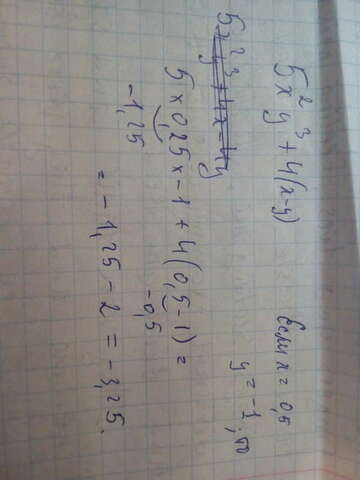 5x²y³ + 4(x-y)
Если x = 0,5
y = -1, то
5x²y³ + 4x - 4y
5 × 0,25 × -1 + 4(0,5 - 1) =
-1,25
-0,5
= -1,25 - 2 = -3,25.